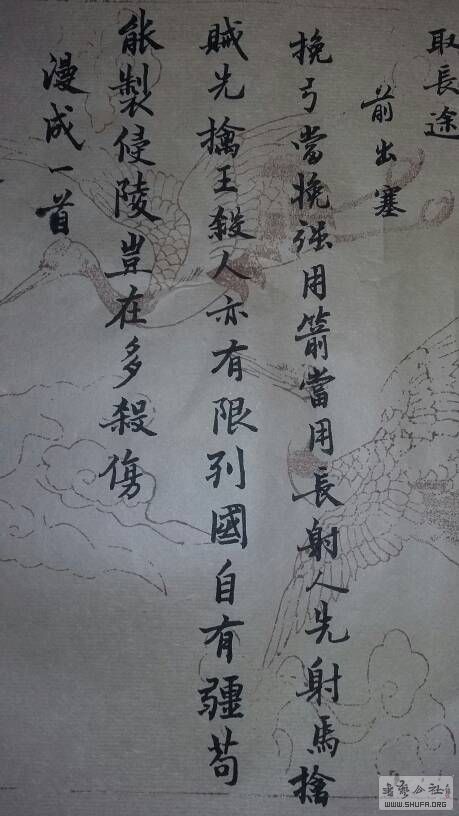 取長途
前出塞
挽弓當挽强用箭當用長射人先射馬擒
賊先擒王殺人亦有限列國自有疆苟
能製侵陵豈在多殺傷
漫成一首
书艺公社
WWW.SHUFA.ORG